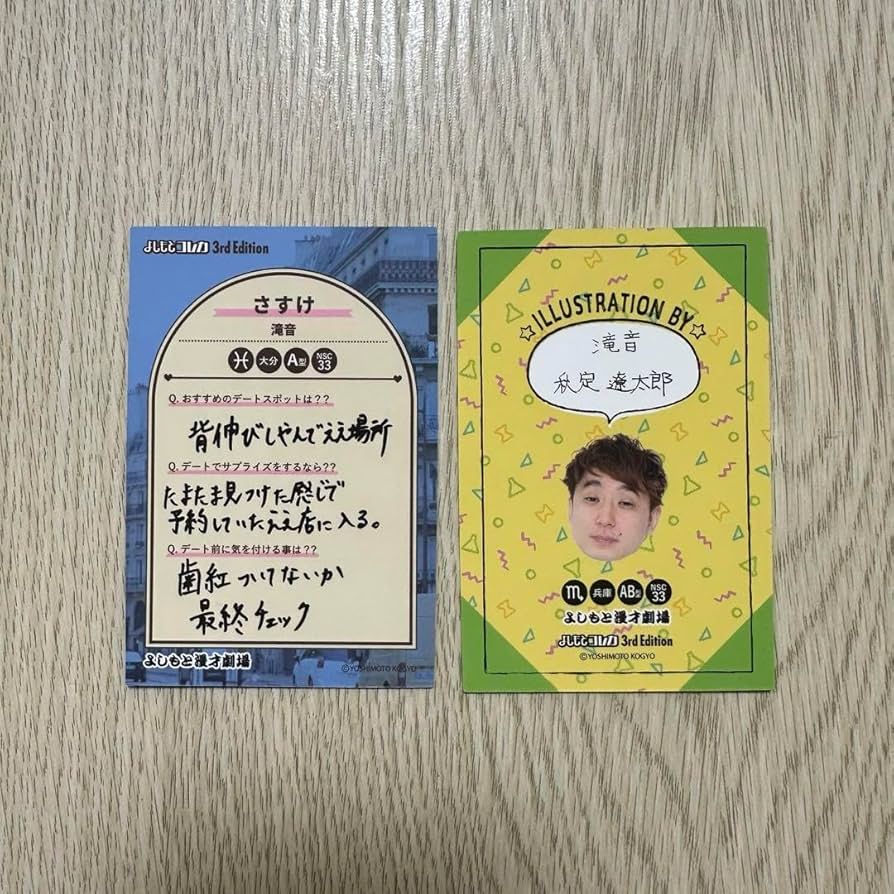 よしもとコレカ 3rd Edition
さすけ
滝音
♓ 大分 A型 NSC 33
Q. おすすめのデートスポットは？？
背伸びしやんでええ場所
Q. デートでサプライズをするなら？？
たまたま見つけた感じで
予約していたええ店に入る。
Q. デート前に気を付ける事は？？
歯紅ついてないか
最終チェック
よしもと漫才劇場
©YOSHIMOTO KOGYO
☆ILLUSTRATION BY☆
滝音
秋定 遼太郎
♏ 兵庫 AB型 NSC 33
よしもと漫才劇場
よしもとコレカ 3rd Edition
©YOSHIMOTO KOGYO